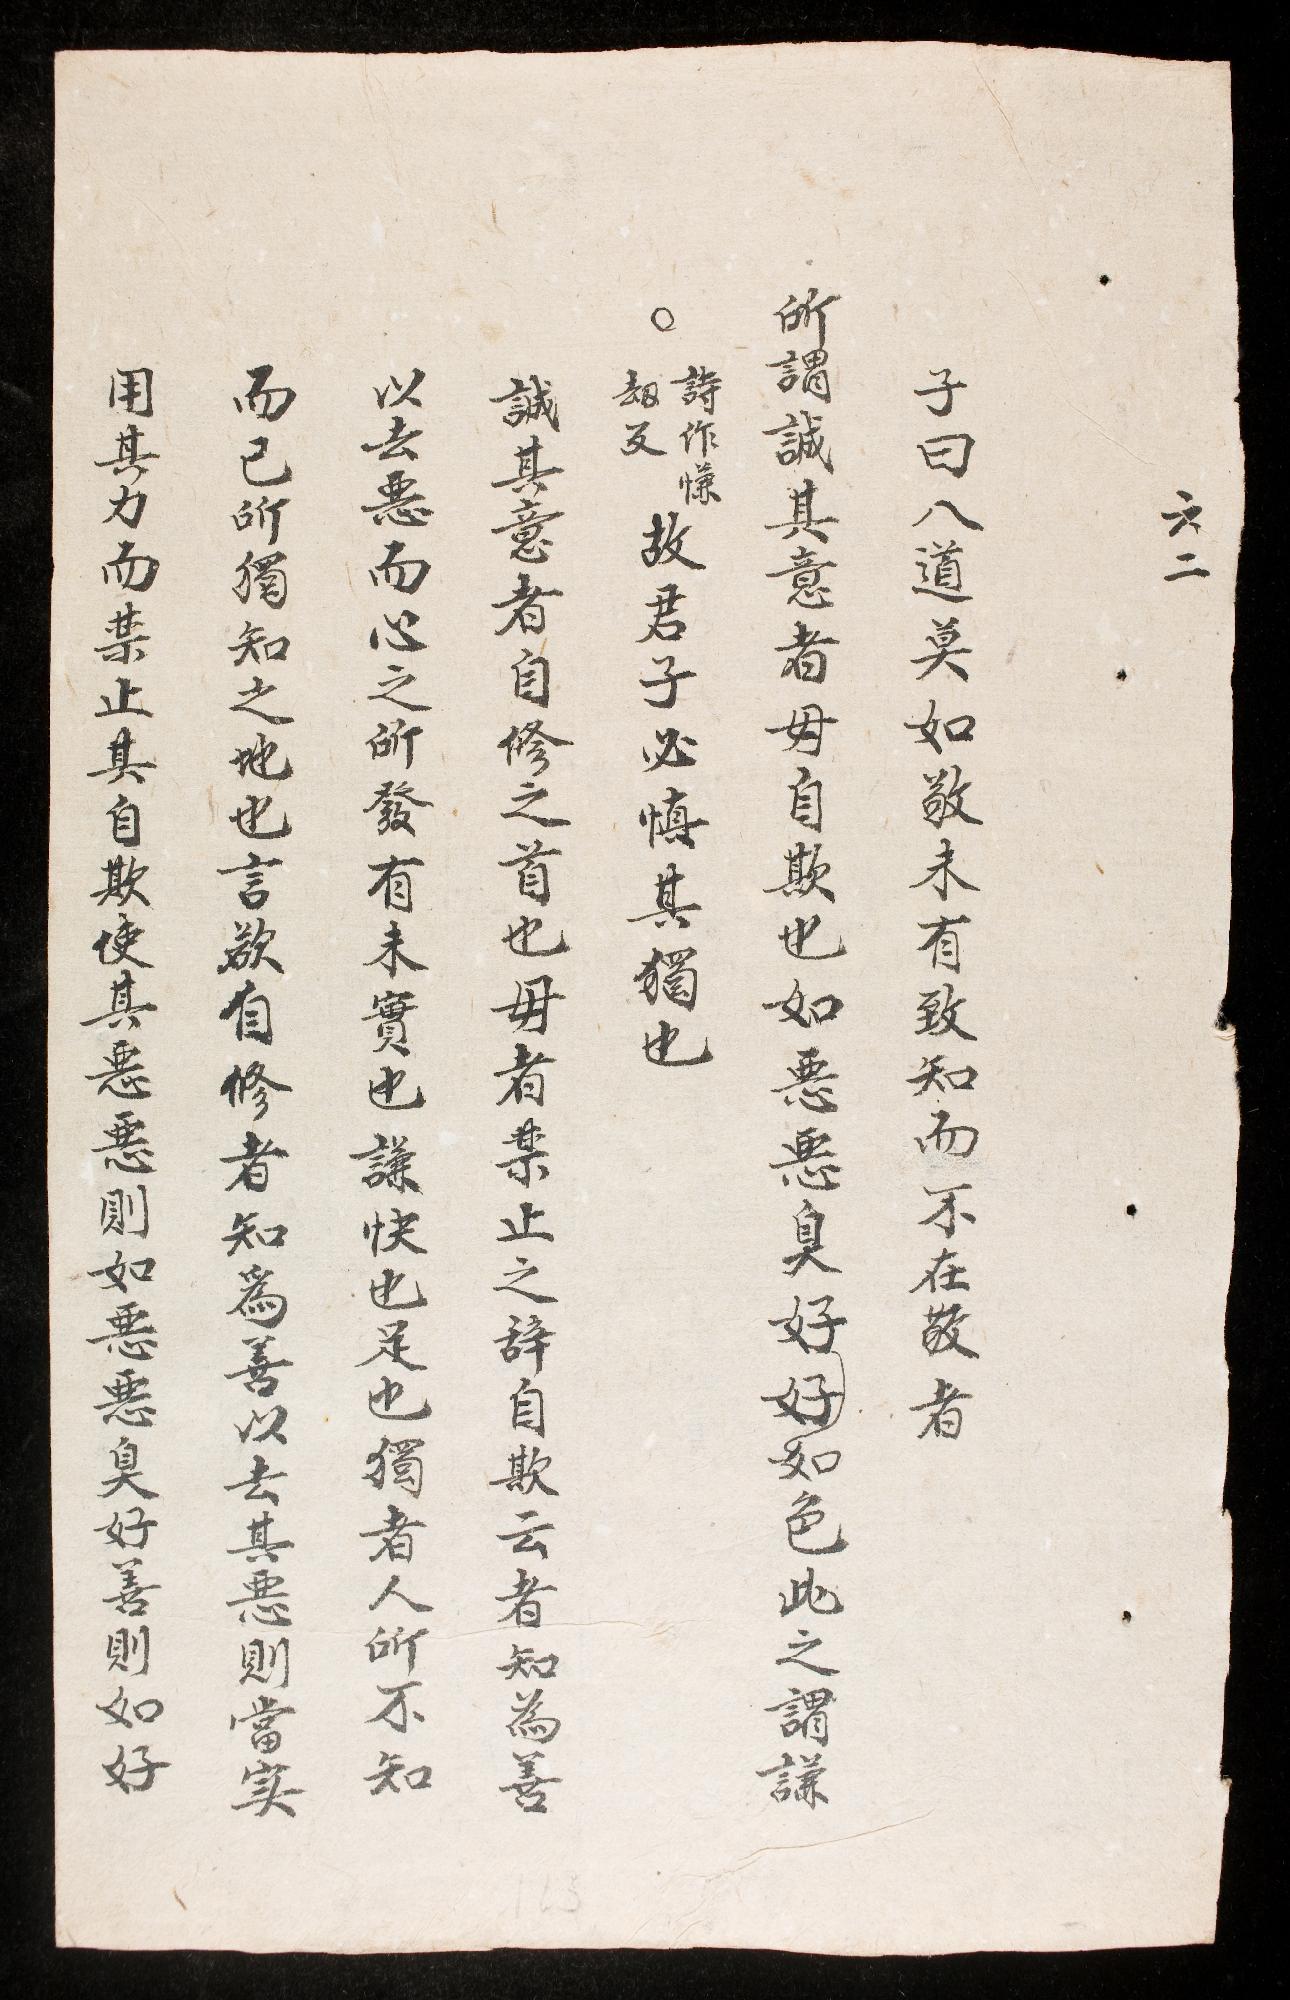 六二
子曰八道莫如敬未有致知而不在敬者
所謂誠其意者毋自欺也如惡惡臭好好如色此之謂謙
○詩作慊劫反故君子必慎其獨也
誠其意者自修之首也毋者禁止之辞自欺云者知為善
以去惡而心之所發有未實也謙快也足也獨者人所不知
而已所獨知之地也言欲自修者知爲善以去其惡則當实
用其力而禁止其自欺使其惡惡則如惡惡臭好善則如好